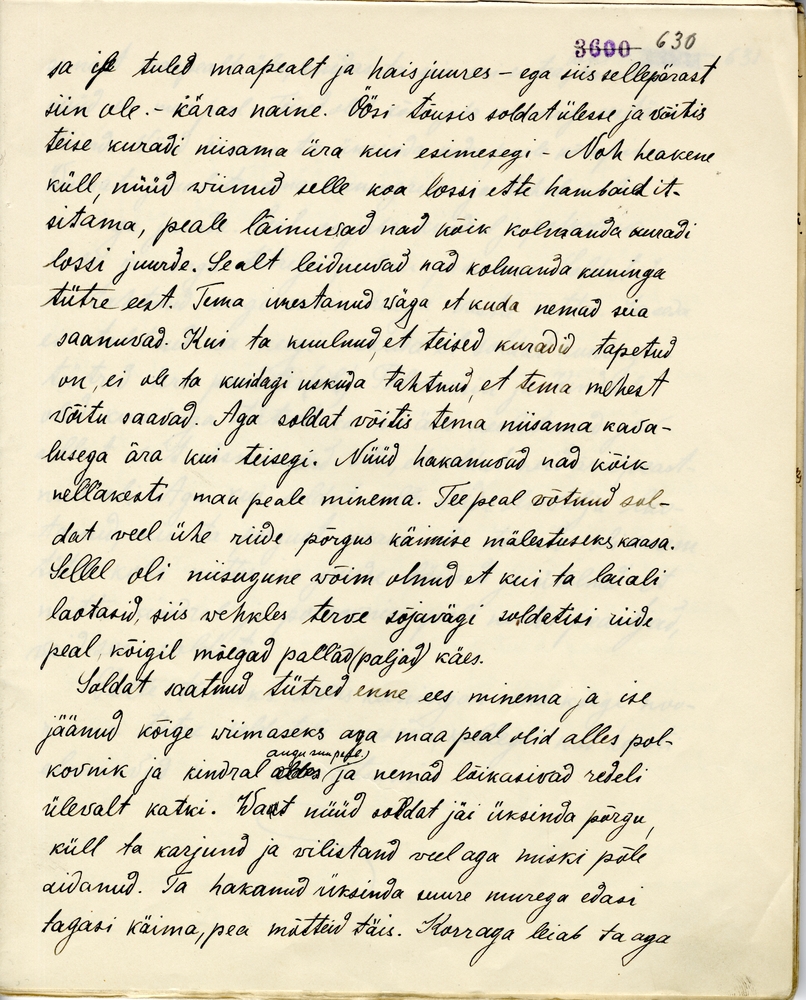 3600 630
sa ise tuled maapealt ja hais juures – ega siis sellepärast
siin ole. – käras naine. Öösi tõusis soldat ülesse ja võitis
teise kuradi niisama ära kui esimesegi – Noh heakene
küll, nüüd wiinud selle koa lossi ette hambaid it-
sitama, peale läinuwad nad kõik kolmanda kuradi
lossi juurde. Sealt leidnuwad nad kolmanda kuninga
tütre eest. Tema imestanud wäga et kuda nemad seia
saanuwad. Kui ta kuulnud, et teised kuradid tapetud
on, ei ole ta kuidagi uskuda tahtnud, et tema mehest
võitu saavad. Aga soldat võitis tema niisama kava-
lusega ära kui teisegi. Nüüd hakanuwad nad kõik
nellakesti maa peale minema. Tee peal wõtnud sol-
dat veel ühe riide põrgus käimise mälestuseks kaasa.
Sellel oli niisugune wõim olnud et kui ta laiali
laotasid, siis vehkles terve sõjavägi soldatisi riide
peal, kõigil mõegad pallad (paljad) käes.
Soldat saatnud tütred enne ees minema ja ise
jäänud kõige wiimaseks aga maa peal olid alles pol-
kovnik ja kindral (augu suu peal) ja nemad lõikasivad redeli
ülevalt katki. Waat nüüd soldat jäi üksinda põrgu,
küll ta karjund ja vilistand veel aga miski põle
aidanud. Ta hakanud üksinda suure murega edasi
tagasi käima, pea mõtteid täis. Korraga leiab ta aga